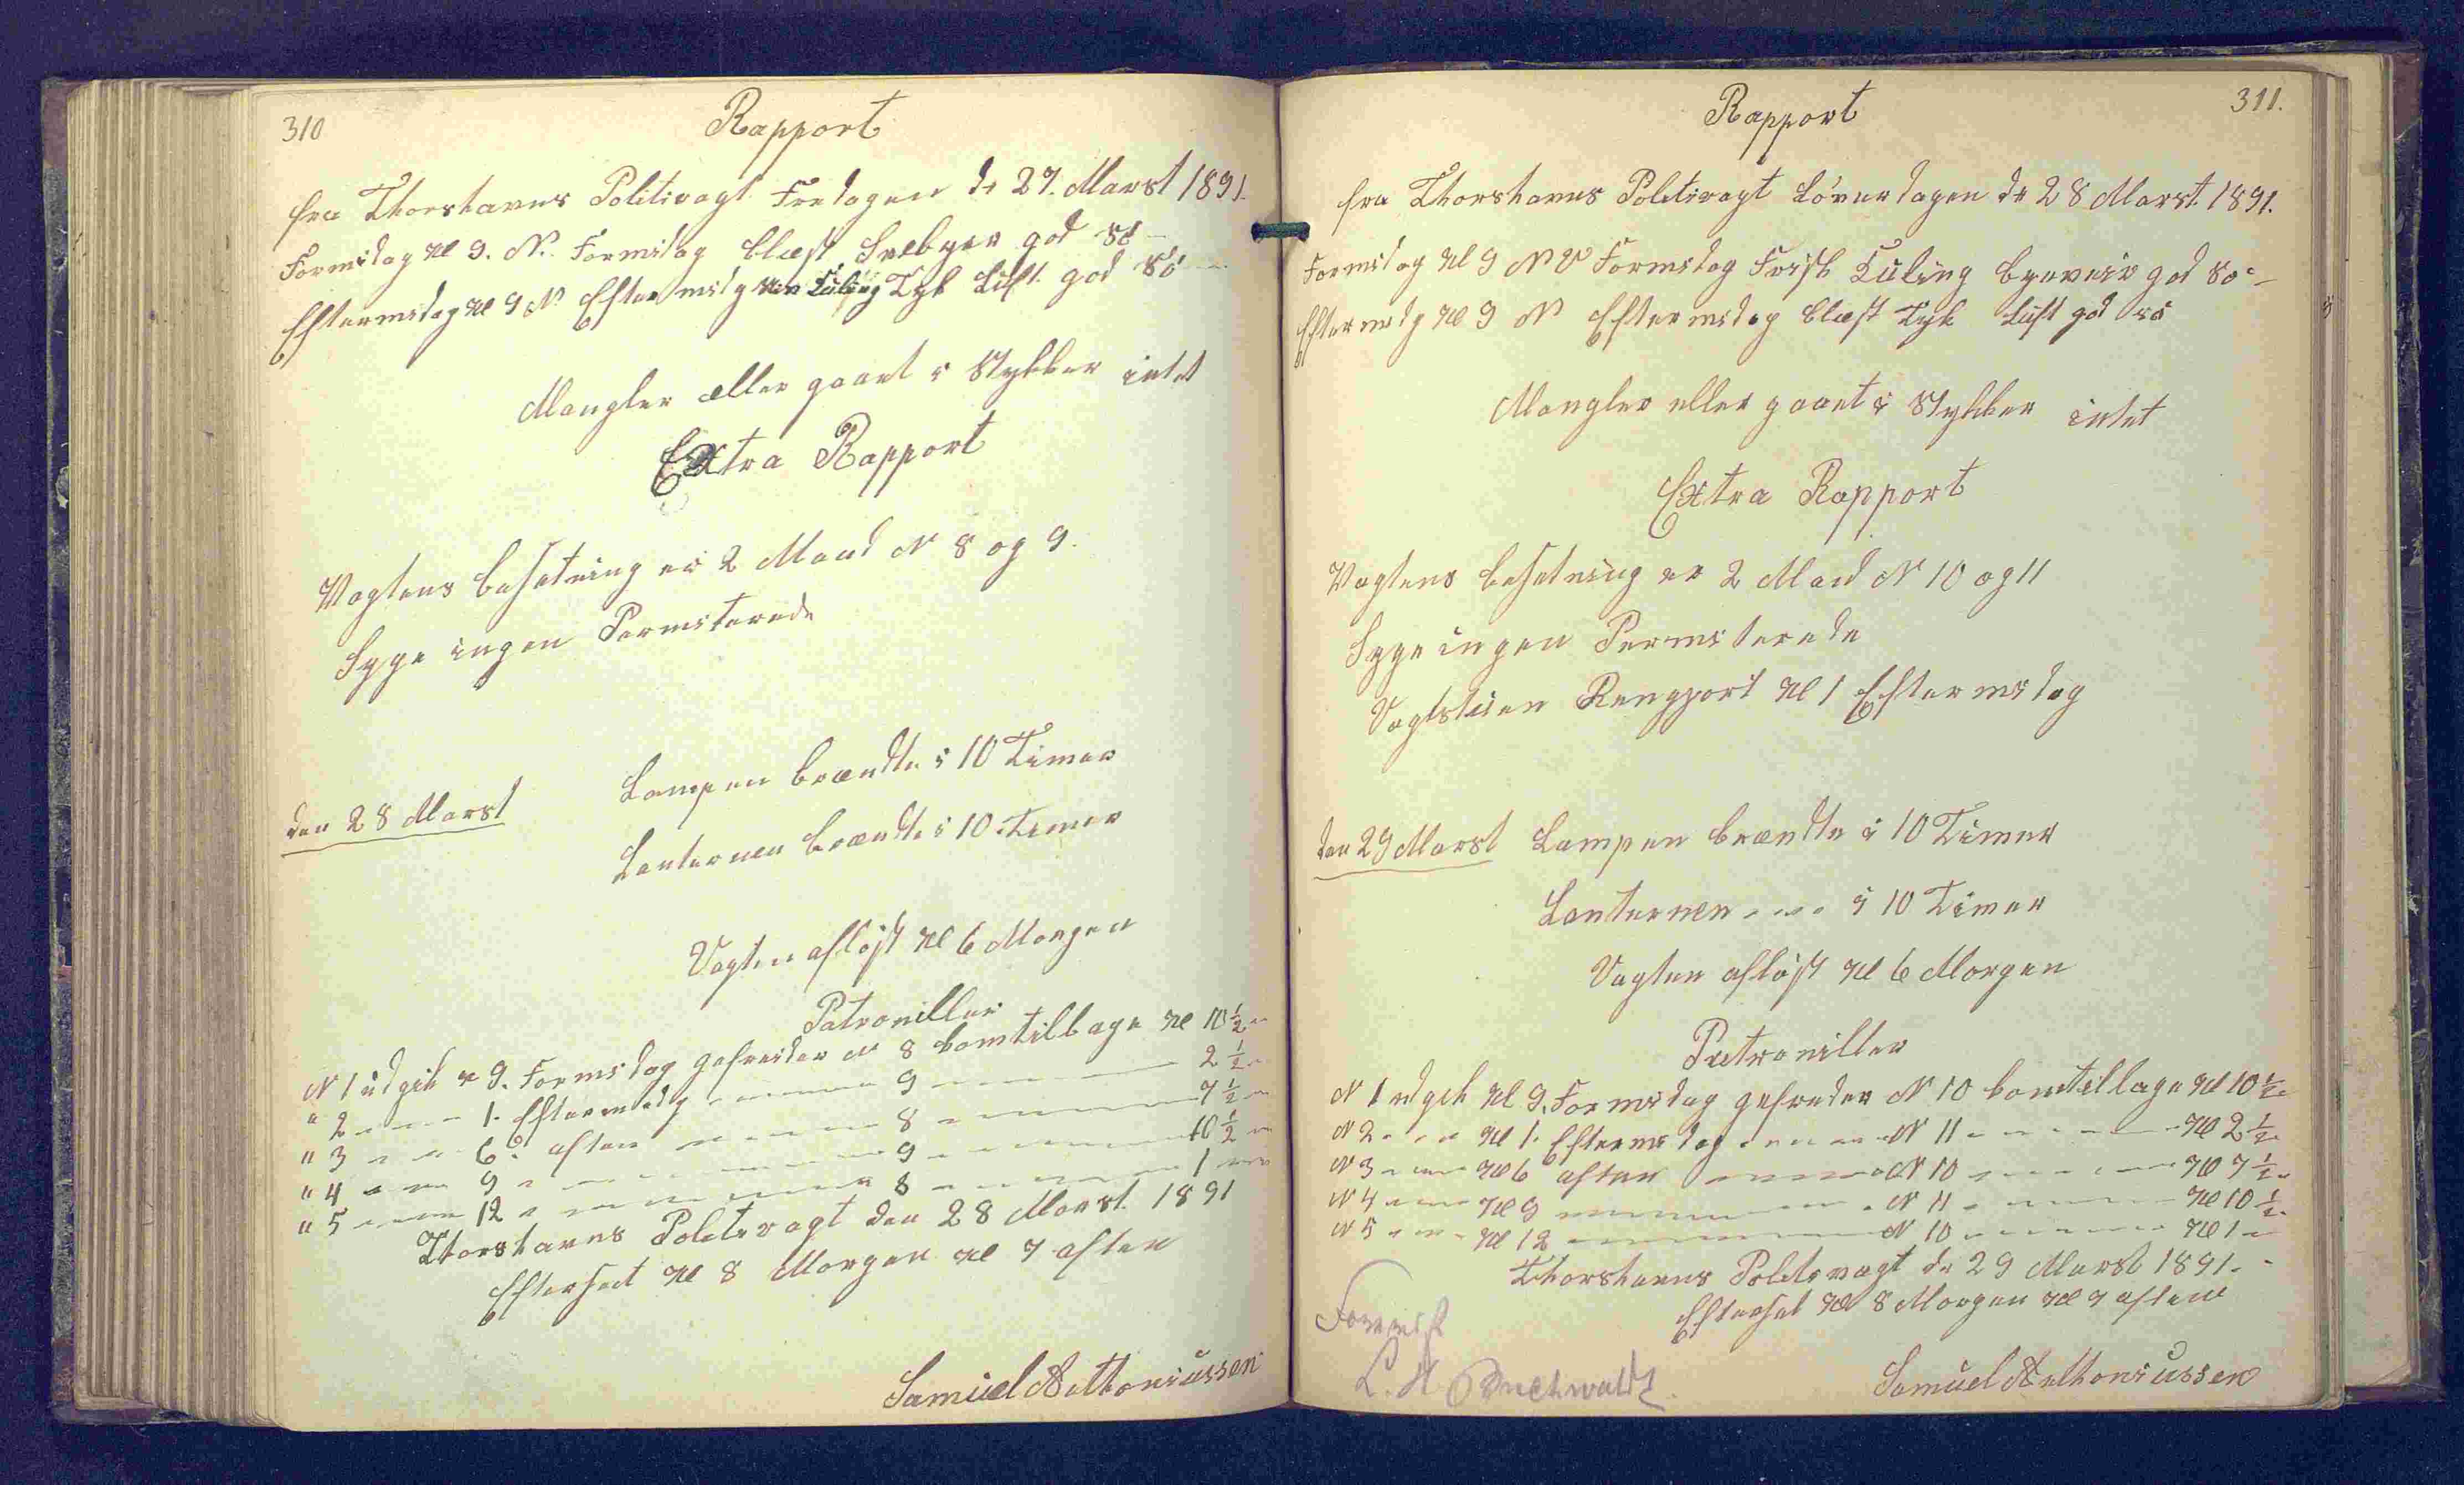 310
Rapport
fra Thorshavns Politivagt Fredagen d. 27. Marst 1891.
Formidag Kl 9. N. Formidag blæst Snebyer god Sö
Eftermidag Kl 9 N Eftermidg Kuling Tyk Luft. god Sö
Mangler eller gaaet i Stykker intet
Extra Rapport
Vagtens besetning er 2 Mand N 8 og 9.
Syge ingen Permiterede
den 28 Marst
Lampen brændte i 10 Timer
Lanternen brændte i 10 Timer
Vagten aflöst Kl 6 Morgen
Patroniller
N 1 udgik Kl 9. Formidag gefreider N 8 komtilbage Kl 10 1/2 "
" 2 " " " 1. Eftermidg " " " 9 " " " 2 1/2 "
" 3 " " " 6. aften " " " 8 " " " 7 1/2 "
" 4 " " " 9 " " " 9 " " " 10 1/2 "
" 5 " " " 12 " " " 8 " " " 1 "
Thorshavns Politivagt den 28 Marst. 1891
Efterseet Kl 8 Morgen Kl 7 aften
Samuel Anthoniussen
311.
Rapport
fra Thorshavns Politivagt Löverdagen d. 28 Marst. 1891.
Formidag Kl 9 N V Formidag Frisk Kuling byeveir god Sö
Eftermidg Kl 9 N Eftermidag blæst Tyk Luft god sö
Mangler eller gaaet i Stykker intet
Extra Rapport
Vagtens besetning er 2 Mand N 10 og 11
Syge ingen Permiterede
Vagtstuen Rengjort Kl 1 Eftermidag
den 29 Marst Lampen brændte i 10 Timer
Lanternen " " " i 10 Timer
Vagten aflöst Kl 6 Morgen
Patroniller
N 1 udgik Kl 9. Formidag gefreder N 10 komtilbage Kl 10 1/2 "
N 2 " " " Kl 1. Eftermidag " " " N 11 " " " Kl 2 1/2 "
N 3 " " " Kl 6 aften " " " N 10 " " " Kl 7 1/2 "
N 4 " " " Kl 9 " " " N 11 " " " Kl 10 1/2 "
N 5 " " " Kl 12 " " " N 10 " " " Kl 1 "
Thorshavns Politivagt d. 29 Marst 1891.
Efterset Kl 8 Morgen Kl 7 aften
Forevist
L. H. Buchwaldt
Samuel Anthoniussen